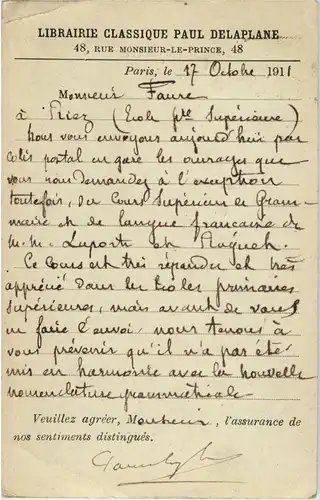 LIBRAIRIE CLASSIQUE PAUL DELAPLANE
48, RUE MONSIEUR-LE-PRINCE, 48
Paris, le 17 Octobre 1911
Monsieur Faure
à Riez (École pre Supérieure)
Nous vous envoyons aujourd'hui par
colis postal en gare les ouvrages que
vous nous demandez à l'exception
toutefois, du Cours Supérieur de Gram-
maire et de langue française de
M.M. Laporte et Raguet.
Ce Cours est très répandu et très
apprécié dans les Écoles primaires
supérieures, mais avant de vous
en faire l'envoi, nous tenons à
vous prévenir qu'il n'a pas été
mis en harmonie avec la nouvelle
nomenclature grammaticale
Veuillez agréer, Monsieur, l'assurance de
nos sentiments distingués.